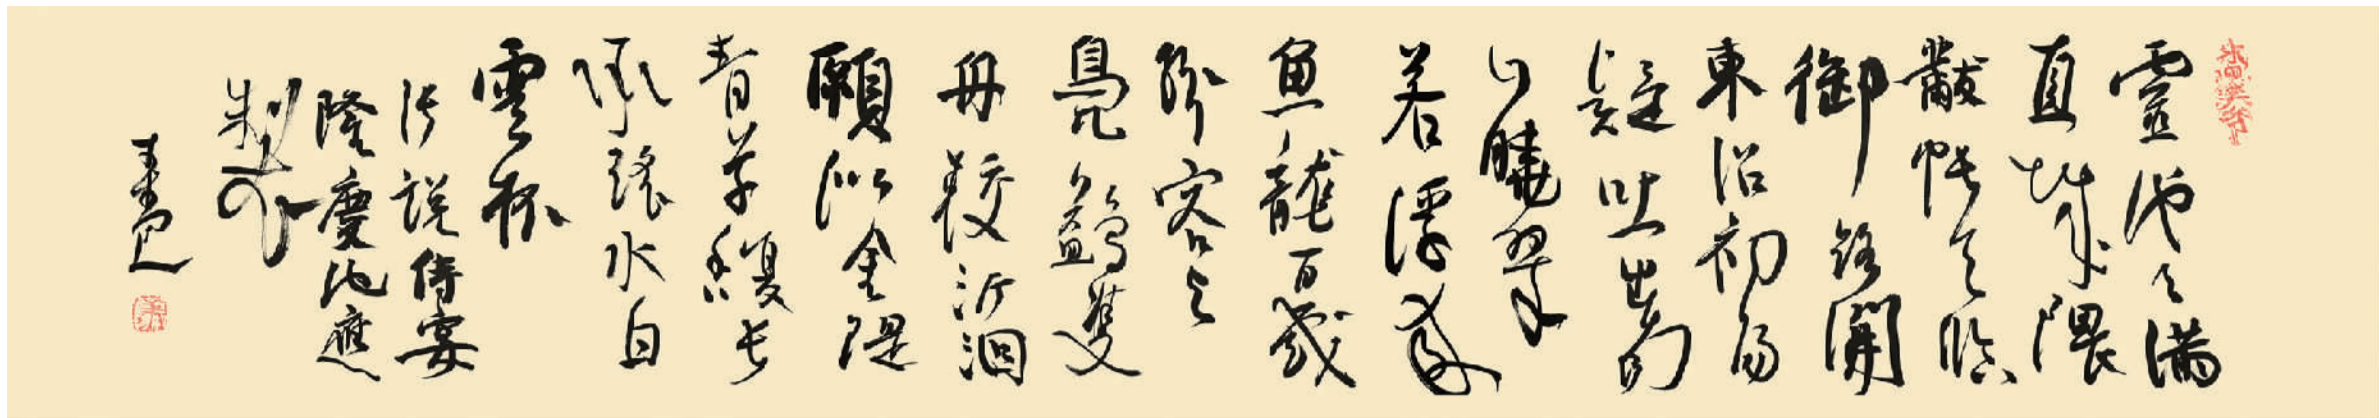 靈池月滿
直城隈
黻帳天臨
御路開
東沼初陽
疑吐出南
山曉翠
若浮來
魚龍百戲
紛容与
鳧鷁雙
舟較泝洄
願似金堤
青草馥長
承瑤水白
雲杯
張説侍宴
隆慶池應
製